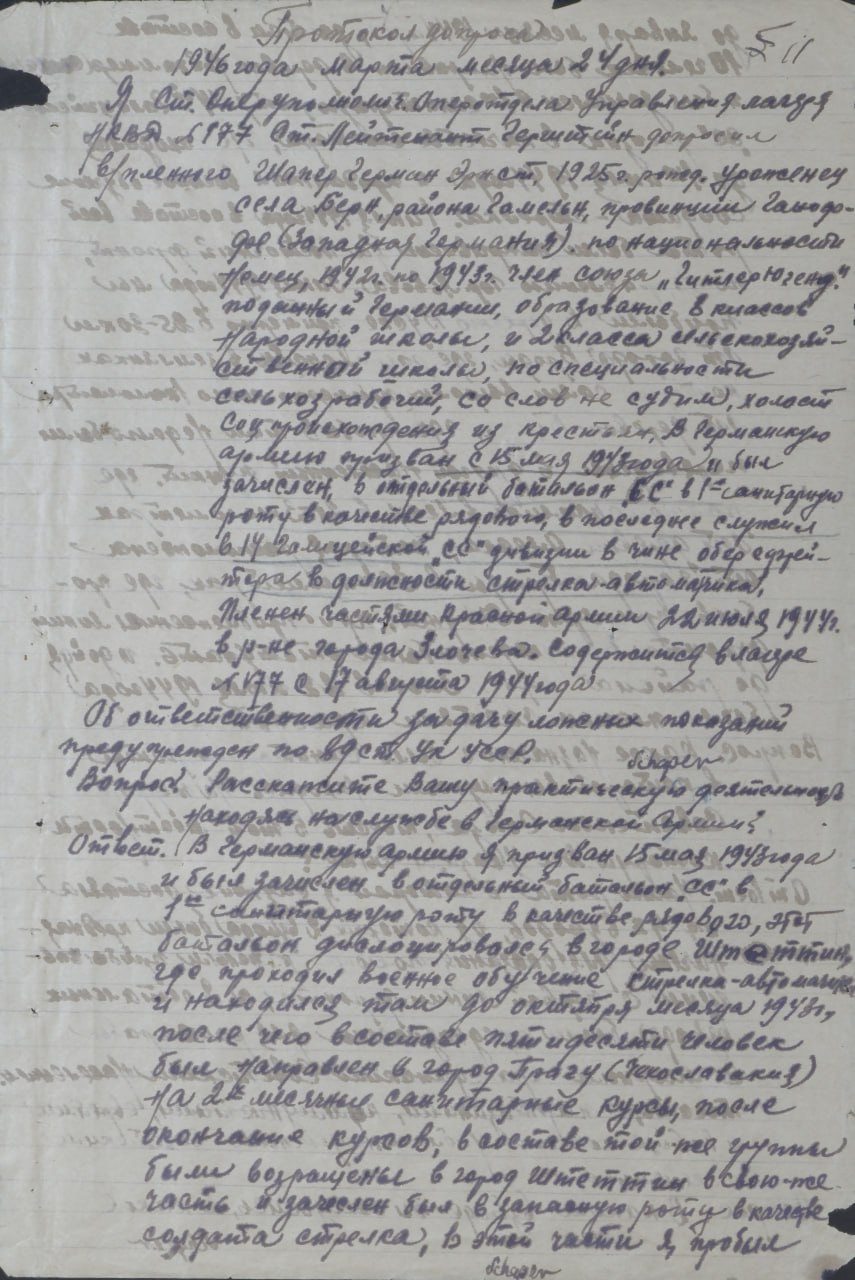 Протокол допроса
11
1946 года марта месяца 24 дня.
Я Ст. Оперуполномоч. Оперотдела Управления лагеря
НКВД №177 Ст. Лейтенант Герштейн допросил
в/пленного Шапер Герман Эрнст, 1925 г. рожд. уроженец
села Берн, района Гамельн, провинции Ганофо-
фер (Западная Германия). по национальности
Немец, 1942 г. по 1943 г. член союза „Гитлерюгенд".
поданный Германии, образование 8 классов
Народной школы, и 2 класса сельскохозяй-
ственный школы, по специальности
сельхозрабочий, со слов не судим, холост
Соц происхождения из крестьян, В Германскую
армию призван с 15 мая 1943 года и был
зачислен, в отдельный батальон „СС" в 1ую санитарную
роту в качестве рядового, в последнее служил
в 14 Галицейской „СС" дивизии в чине обер ефрей-
тора в должности стрелка-автоматчика,
Пленен частями Красной армии 22 июля 1944 г.
в р-не города Злочева. Содержится в лагере
№177 с 17 августа 1944 года
Об ответственности за дачу ложных показаний
предупрежден по ст. УК УССР.
Schaper
Вопрос: Расскажите Вашу практическую деятельность
находясь на службе в Германской Армии?
Ответ. В Германскую армию я призван 15 мая 1943 года
и был зачислен в отдельный батальон „СС" в
1ую санитарную роту в качестве рядового, этот
батальон дислоцировался в городе Штеттин,
где проходил военное обучение стрелка-автоматчика
и находился там до октября месяца 1943 г,
после чего в составе пятидесяти человек
был направлен в город Прагу (Чехославакия)
на 2х месячные санитарные курсы, после
окончание курсов, в составе той-же группы
были возращены в город Штеттин в свою-же
часть и зачеслен был в запасную роту в качестве
солдата стрелка, в этой части я пробыл
Schaper